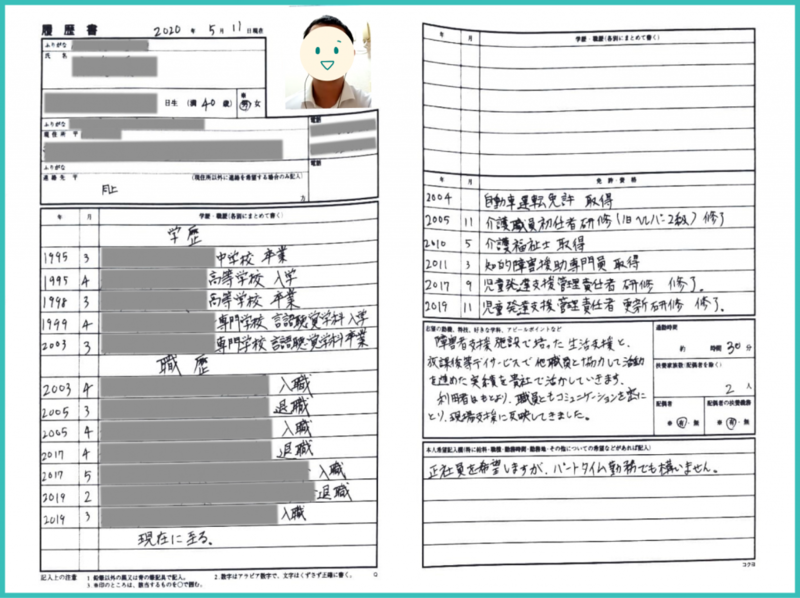 履歴書 2020年 5月 11日現在
ふりがな
氏名
日生 (満 40 歳) ※ 男・女
ふりがな
現住所 〒
電話
ふりがな
連絡先 〒 (現住所以外に連絡を希望する場合のみ記入)
電話
同上
方
年 月 学歴・職歴(各別にまとめて書く)
学歴
1995 3 中学校 卒業
1995 4 高等学校 入学
1998 3 高等学校 卒業
1999 4 専門学校 言語聴覚学科 入学
2003 3 専門学校 言語聴覚学科 卒業
職歴
2003 4 入職
2005 3 退職
2005 4 入職
2017 4 退職
2017 5 入職
2019 2 退職
2019 3 入職
現在に至る。
記入上の注意 1.鉛筆以外の黒又は青の筆記具で記入。 2.数字はアラビア数字で、文字はくずさず正確に書く。
3.※印のところは、該当するものを○で囲む。
年 月 学歴・職歴(各別にまとめて書く)
年 月 免許・資格
2004 自動車運転免許 取得
2005 11 介護職員初任者研修(旧ヘルパー2級) 修了
2010 5 介護福祉士 取得
2011 3 知的障害援助専門員 取得
2017 9 児童発達支援管理責任者 研修 修了。
2019 11 児童発達支援管理責任者 更新研修 修了。
志望の動機、特技、好きな学科、アピールポイントなど
障害者支援施設で培った生活支援と、
放課後等デイサービスで他職員と協力して活動
を進めた実績を貴社で活かしていきます。
利用者はもとより、職員ともコミュニケーションを密に
とり、現場支援に反映してきました。
通勤時間
約 時間 30 分
扶養家族数(配偶者を除く)
2 人
配偶者
※ 有・無
配偶者の扶養義務
※ 有・無
本人希望記入欄(特に給料・職種・勤務時間・勤務地・その他についての希望などがあれば記入)
正社員を希望しますが、パートタイム勤務でも構いません。